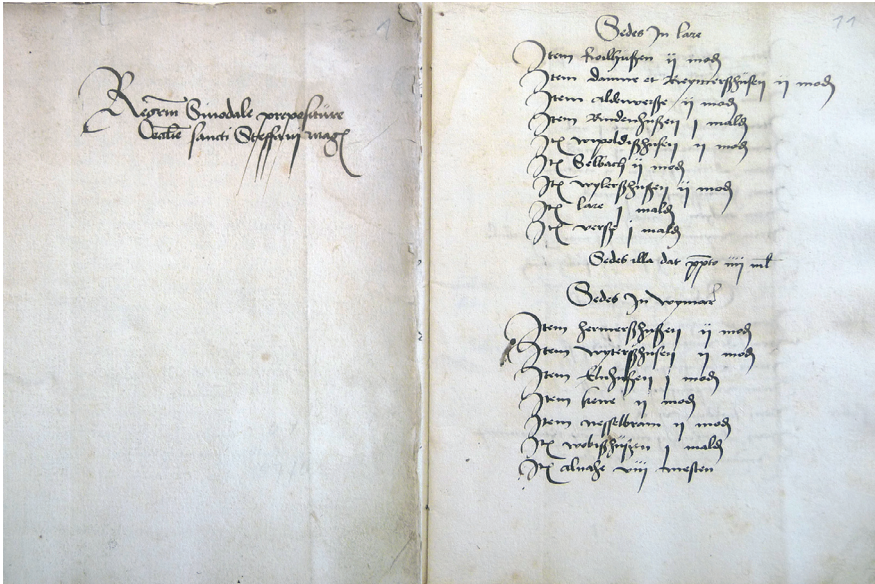 1
Regrm Sinodale prepositure
Ecclie sancti Steffani mag
11
Sedes In lare
Item ij mod
Item damme et Reymerßhusen ij mod
Item aldenveße ij mod
Item Rudenhußen j mald
It wypoldeßhusen ij mod
It Selbach ij mod
It wylerßhusen ij mod
It lare j mald
It verße j mald
Sedes illa dat ppto iiij ml
Sedes In wymar
Item hermerßhusen ij mod
Item wyterßhusen ij mod
Item Elnhusen j mod
Item kene ij mod
Item nesselbrun ij mod
It wobißhußen j mald
It alnahe viij mesten